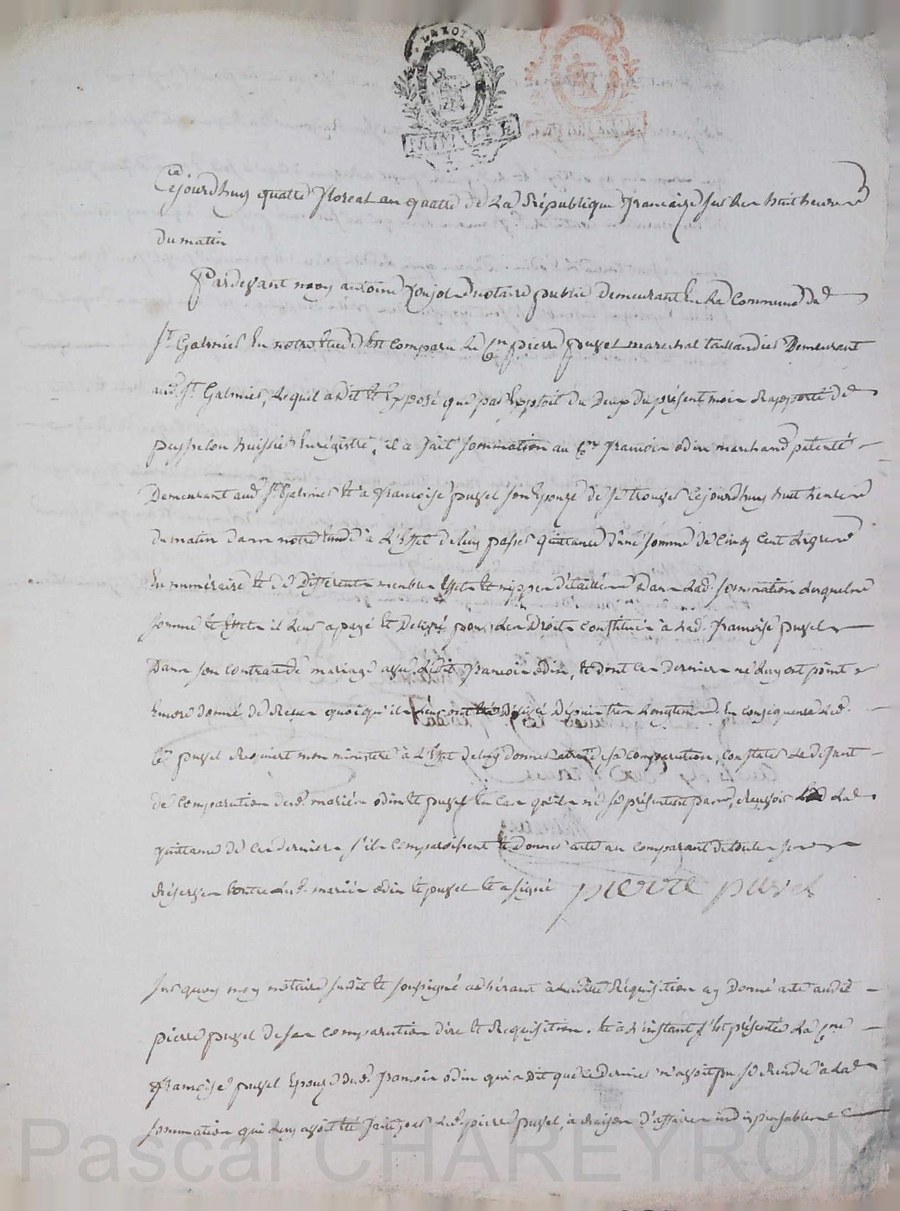 LA LOI
MINUTE
Cejourdhuy quatre floreal an quatre de La République francaise sur Les huit heures
du matin
Pardevant moy antoine notaire public demeurant en La Commune de
St Galmier En notre Etude Est comparu Le Cen pierre puzel marechal taillandier Demeurant
aud. St Galmier, Lequel a dit et Exposé que par Exploit du deux du présent mois Rapporté de
huissier Enregistré, il a fait sommation au Cen francois odin marchand patenté
Demeurant aud. St Galmier et a francoise puzel son Epouze de se trouver cejourdhuy huit heures
du matin dans notre Etude à L'Effet de luy passer quittance d'une somme de Cinq Cent Livres
En numéraire et de Différents meubles Effets et nippes détaillées dans Lad. sommation Lesquelles
somme et Effets il Leur a payé et Délivré pour Les Droits constitués à Lad. francoise puzel
Dans son contrat de mariage avec Ledit francois odin, et dont ce dernier ne Luy ont point
Encore donné de Reçu quoiqu'il Leur ont Délivré Depuis Longtems. En conséquence Led.
Cen puzel Requiert mon ministère à L'Effet de luy donner acte de sa comparution, constater Le défaut
de comparution desd. mariés odin et puzel En Cas qu'ils ne se présentent pas, Recevoir La
quittance de ces derniers s'ils comparoissent et Donner acte au comparant de toutes ses
Réserves Contre Lesd. mariés odin et puzel et a signé pierre puzel
sur quoy moy notaire susdit et soussigné adhérant à Ladite Réquisition ay Donné acte audit
pierre puzel de ses comparution dire et Requisition. et a L'instant s'est présentée La Cne
francoise puzel Epouze dud. francois odin qui a dit que ce dernier n'avoit pu se Rendre à La
sommation qui Leur avoit été faite par Led. pierre puzel, à Raison d'affaires indispensables
Pascal CHAREYRON